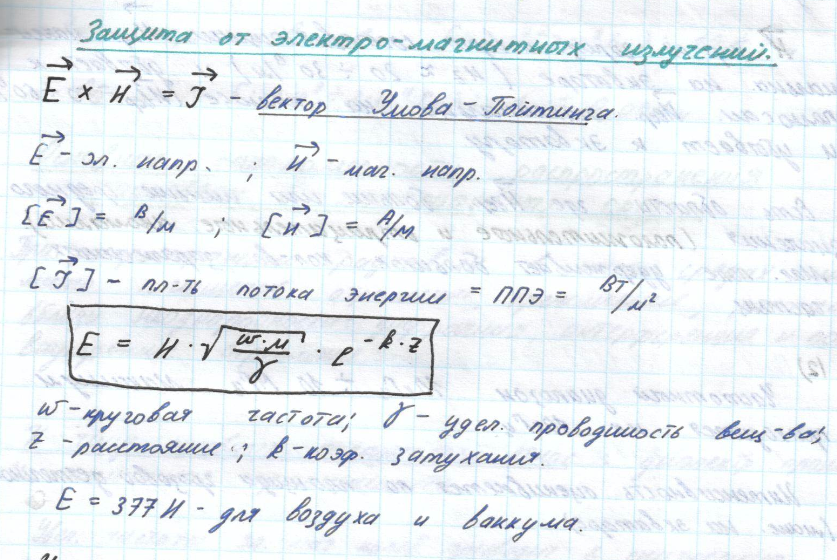 Защита от электро-магнитных излучений.
E⃗ x H⃗ = J⃗ - вектор Умова-Пойтинга.
E⃗ - эл. напр. ; H⃗ - маг. напр.
[E⃗] = В/м ; [H⃗] = А/м
[J⃗] - пл-ть потока энергии = ППЭ = Вт/м²
E = H · √(w·м/γ) · e^(-k·z)
w - круговая частота; γ - удел. проводимость вещ-ва;
z - расстояние; k - коэф. затухания.
E = 377 H - для воздуха и ваккума.